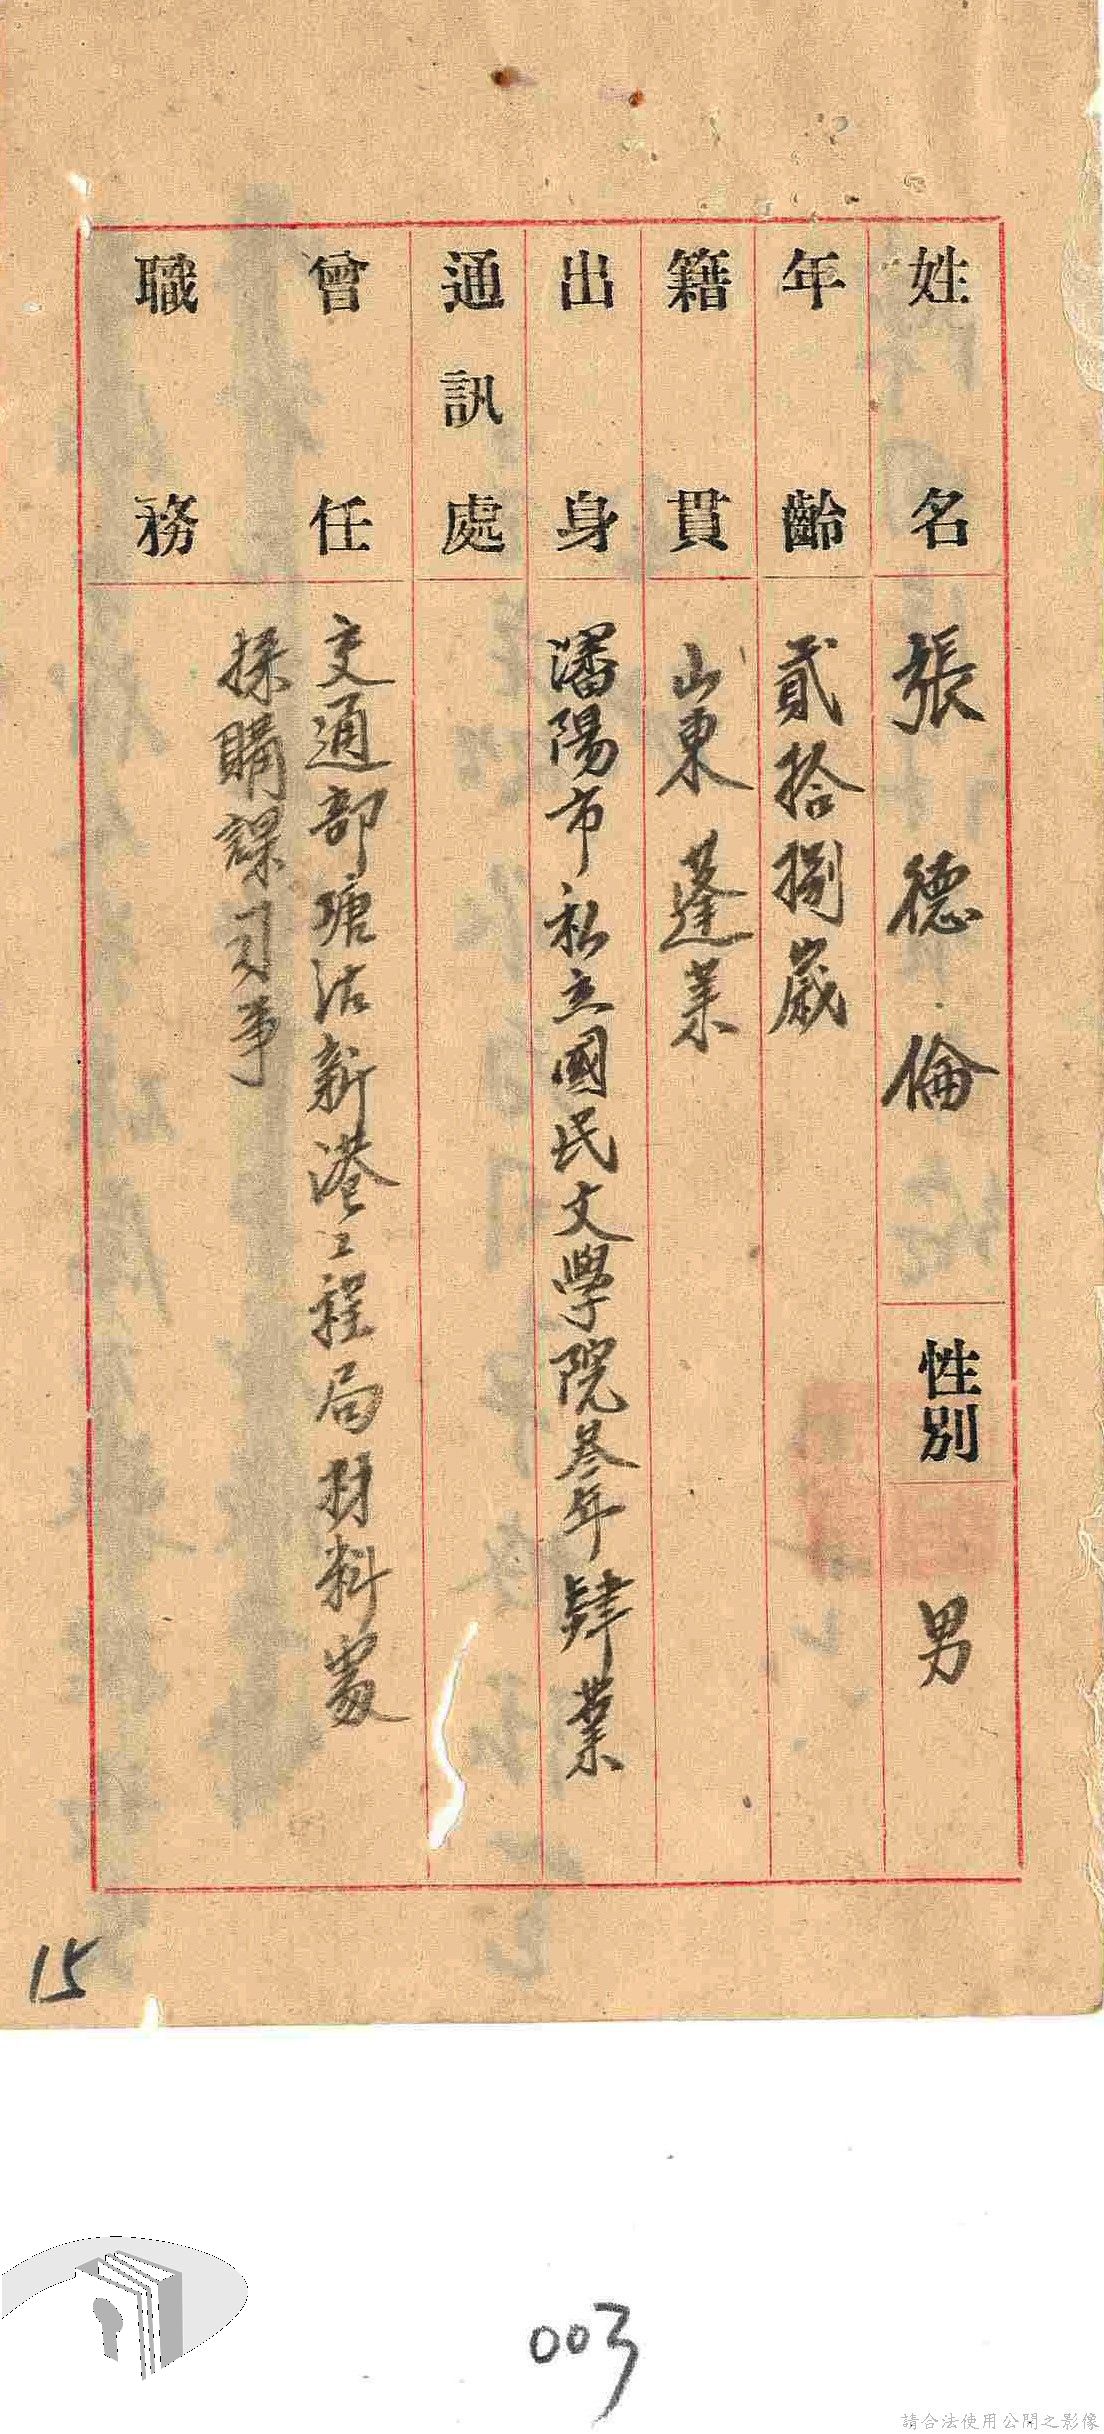 姓名 張德倫 性別 男
年齡 貳拾捌歲
籍貫 山東蓬萊
出身 瀋陽市私立國民文學院叁年肆業
通訊處
曾任職務 交通部塘沽新港工程局材料處
採購課司事
15
003
請合法使用公開之影像